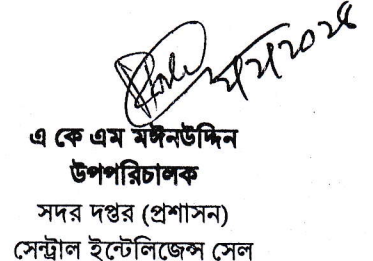 এ কে এম মঈনউদ্দিন
উপপরিচালক
সদর দপ্তর (প্রশাসন)
সেন্ট্রাল ইন্টেলিজেন্স সেল